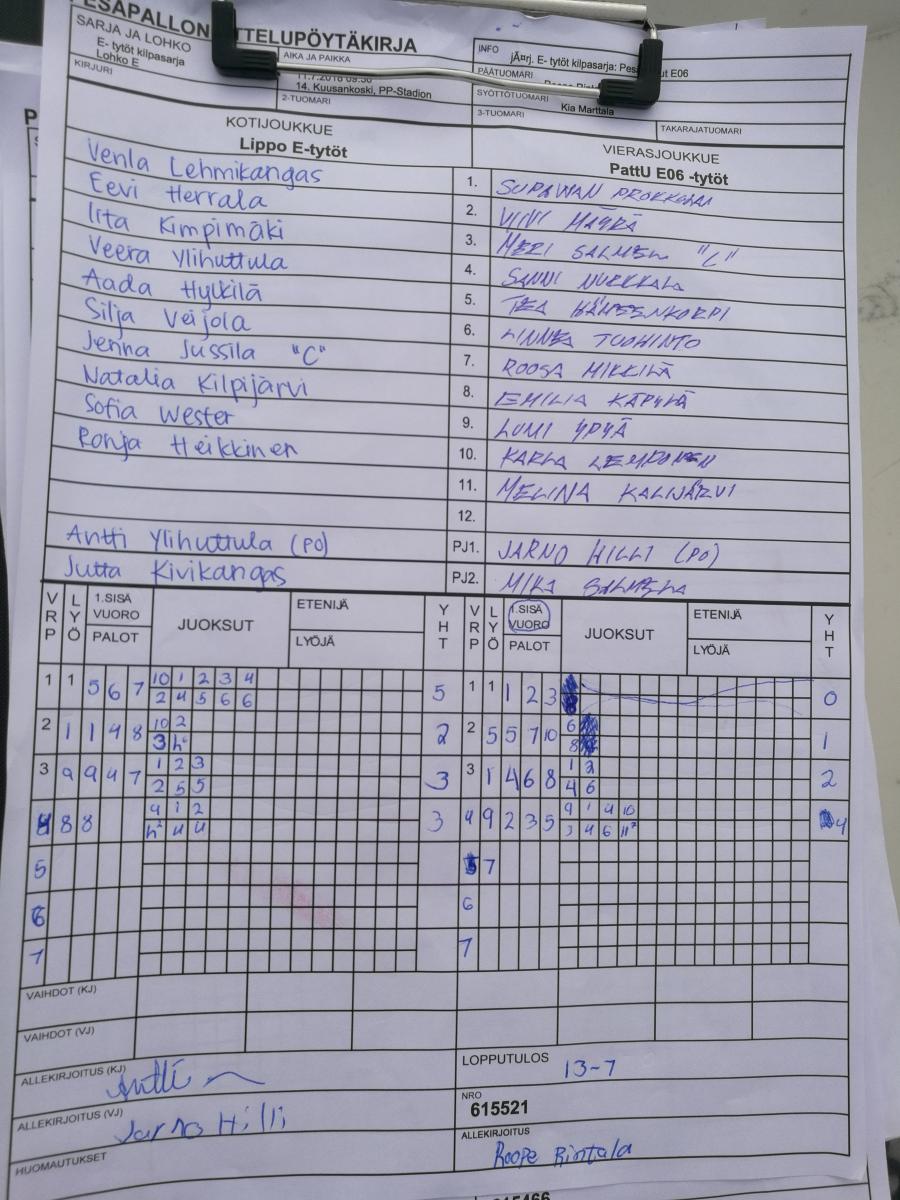 PESAPALLON TTELUPÖYTÄKIRJA
SARJA JA LOHKO
E- tytöt kilpasarja
Lohko E
AIKA JA PAIKKA
14. Kuusankoski, PP-Stadion
INFO
jÃ¤rj. E- tytöt kilpasarja: Pesä ut E06
PÄÄTUOMARI
SYÖTTÖTUOMARI
Kia Marttala
KIRJURI
2-TUOMARI
3-TUOMARI
TAKARAJATUOMARI
KOTIJOUKKUE
Lippo E-tytöt
VIERASJOUKKUE
PattU E06 -tytöt
Venla Lehmikangas 1. SUPAWAN
Eevi Herrala 2. VIIVI MÄYRÄ
Iita Kimpimäki 3. MERI SALMELA "C"
Veera Ylihuttula 4. SANNI NURKKALA
Aada Hylkilä 5. TEA HÄMEENKORPI
Silja Veijola 6. LINNEA TUOHINTO
Jenna Jussila "C" 7. ROOSA MIKKILÄ
Natalia Kilpijärvi 8. EMILIA KÄPYLÄ
Sofia Wester 9. LUMI YPYÄ
Ronja Heikkinen 10. KARLA LEMPONEN
11. MELINA KALIJÄRVI
12.
Antti Ylihuttula (PO) PJ1. JARNO HILLI (PO)
Jutta Kivikangas PJ2. MIKA SALMELA
VRP LYÖ 1.SISÄ VUORO PALOT JUOKSUT ETENIJÄ LYÖJÄ YHT VRP LYÖ 1.SISÄ VUORO PALOT JUOKSUT ETENIJÄ LYÖJÄ YHT
1 1 5 6 7 10 1 2 3 4 5 1 1 1 2 3 0
2 4 5 6 6
2 1 1 4 8 10 2 2 2 5 5 7 10 6 1
3 h° 8
3 9 9 4 7 1 2 3 3 3 1 4 6 8 1 2 2
2 5 5 4 6
4 8 8 9 1 2 3 4 9 2 3 5 9 1 9 10 4
h² 4 4 3 4 6 11²
5 5 7
6 6
7 7
VAIHDOT (KJ)
VAIHDOT (VJ)
ALLEKIRJOITUS (KJ) Antti
LOPPUTULOS 13-7
ALLEKIRJOITUS (VJ) Jarno Hilli
NRO
615521
HUOMAUTUKSET
ALLEKIRJOITUS
Roope Rintala